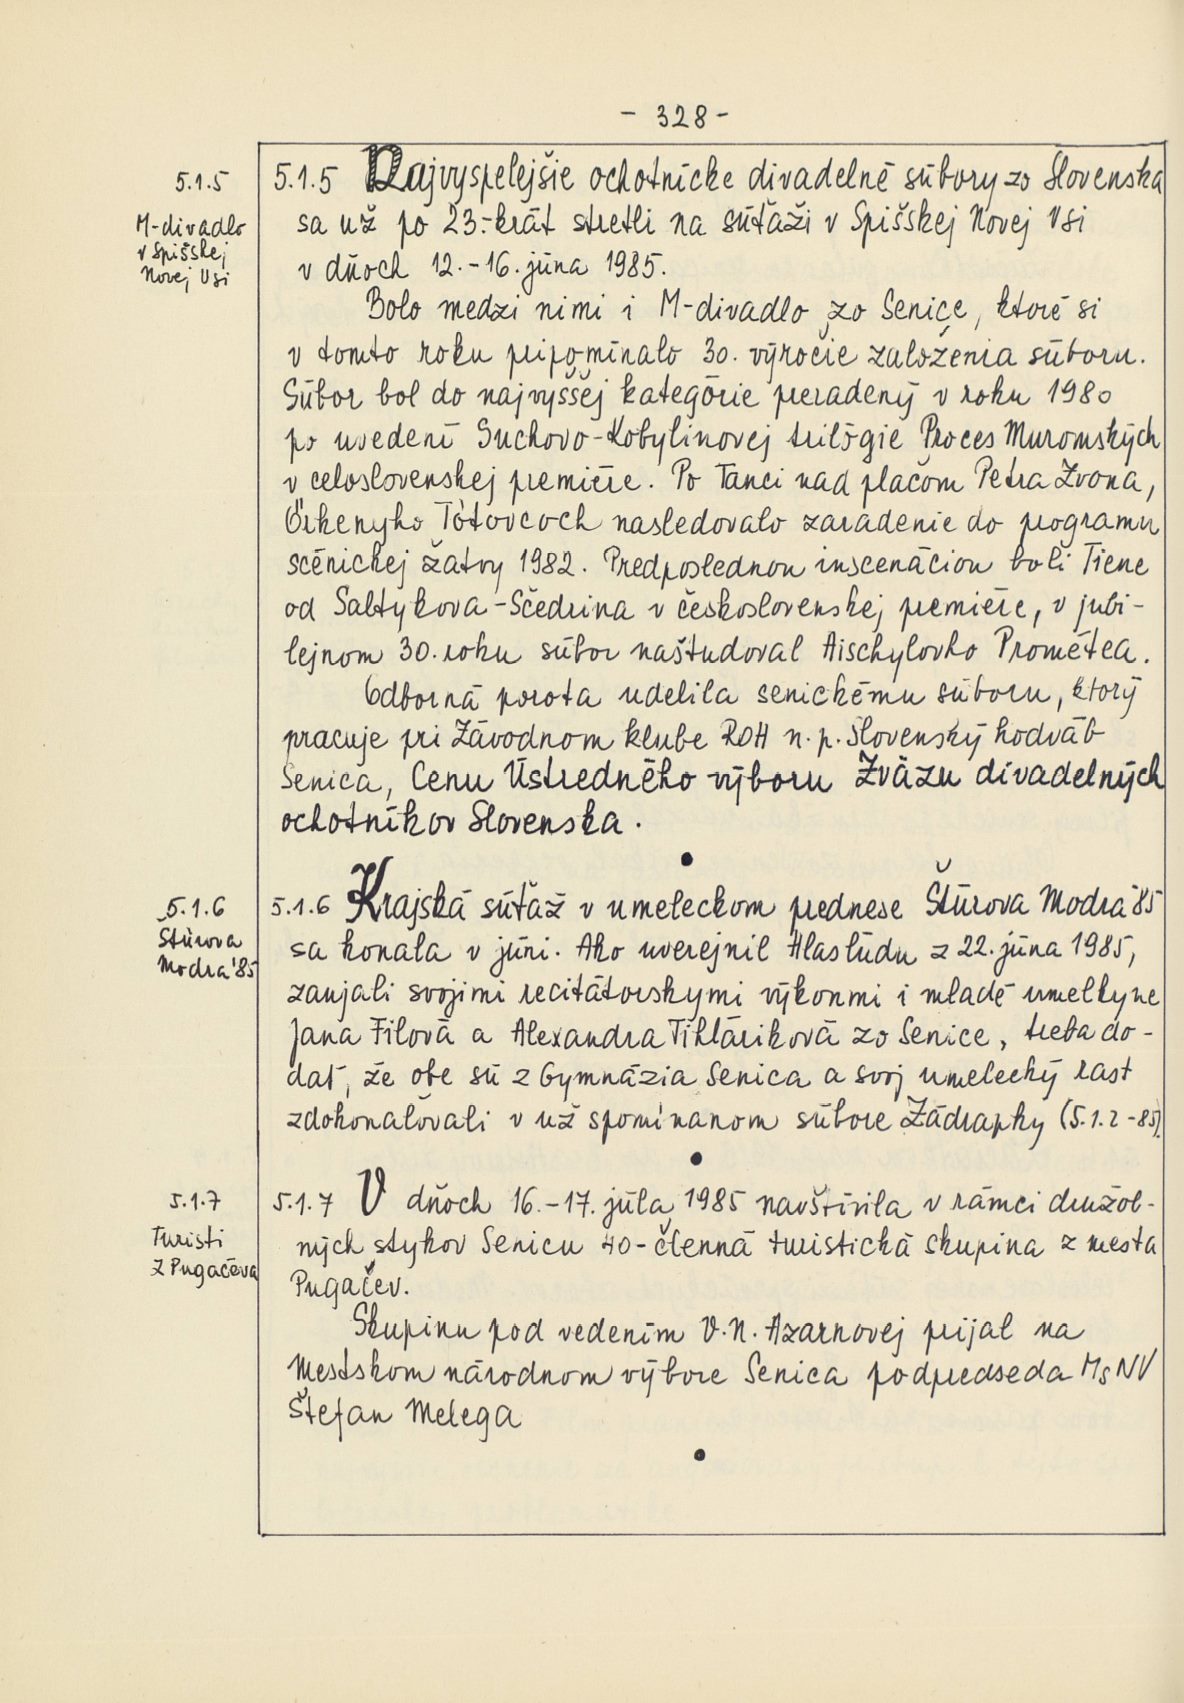 - 328 -
5.1.5
M-divadlo
v Spišskej
Novej Vsi
5.1.5 Najvyspelejšie ochotnícke divadelné súbory zo Slovenska
sa už po 23.-krát stretli na súťaži v Spišskej Novej Vsi
v dňoch 12.-16. júna 1985.
Bolo medzi nimi i M-divadlo zo Senice, ktoré si
v tomto roku pripomínalo 30. výročie založenia súboru.
Súbor bol do najvyššej kategórie preradený v roku 1980
po uvedení Suchovo-Kobylinovej trilógie Proces Muromských
v celoslovenskej premiére. Po Tanci nad plačom Petra Zvona,
Örkenyho Tótovcoch nasledovalo zaradenie do programu
scénickej žatvy 1982. Predposlednou inscenáciou boli Tiene
od Saltykova-Ščedrina v československej premiére, v jubi-
lejnom 30. roku súbor naštudoval Aischylovho Prométea.
Odborná porota udelila senickému súboru, ktorý
pracuje pri Závodnom klube ROH n. p. Slovenský hodváb
Senica, Cenu Ústredného výboru Zväzu divadelných
ochotníkov Slovenska.
5.1.6
Štúrova
Modra '85
5.1.6 Krajská súťaž v umeleckom prednese Štúrova Modra '85
sa konala v júni. Ako uverejnil Hlas ľudu z 22. júna 1985,
zaujali svojimi recitátorskymi výkonmi i mladé umelkyne
Jana Filová a Alexandra Tihláriková zo Senice, treba do-
dať, že obe sú z Gymnázia Senica a svoj umelecký rast
zdokonaľovali v už spomínanom súbore Zádrapky (5.1.2-85).
5.1.7
Turisti
z Pugačeva
5.1.7 V dňoch 16.-17. júla 1985 navštívila v rámci družob-
ných stykov Senicu 40-členná turistická skupina z mesta
Pugačev.
Skupinu pod vedením V. N. Azarnovej prijal na
Mestskom národnom výbore Senica podpredseda MsNV
Štefan Melega